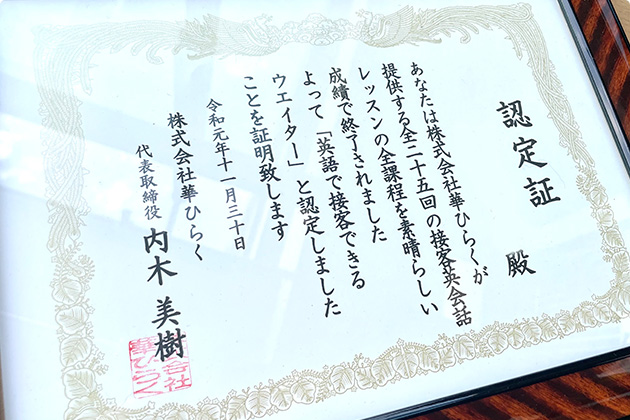 認定証
殿
あなたは株式会社華ひらくが
提供する全二十五回の接客英会話
レッスンの全課程を素晴らしい
成績で終了されました
よって「英語で接客できる
ウエイター」と認定しました
ことを証明致します
令和元年十一月三十日
株式会社華ひらく
代表取締役 内木美樹